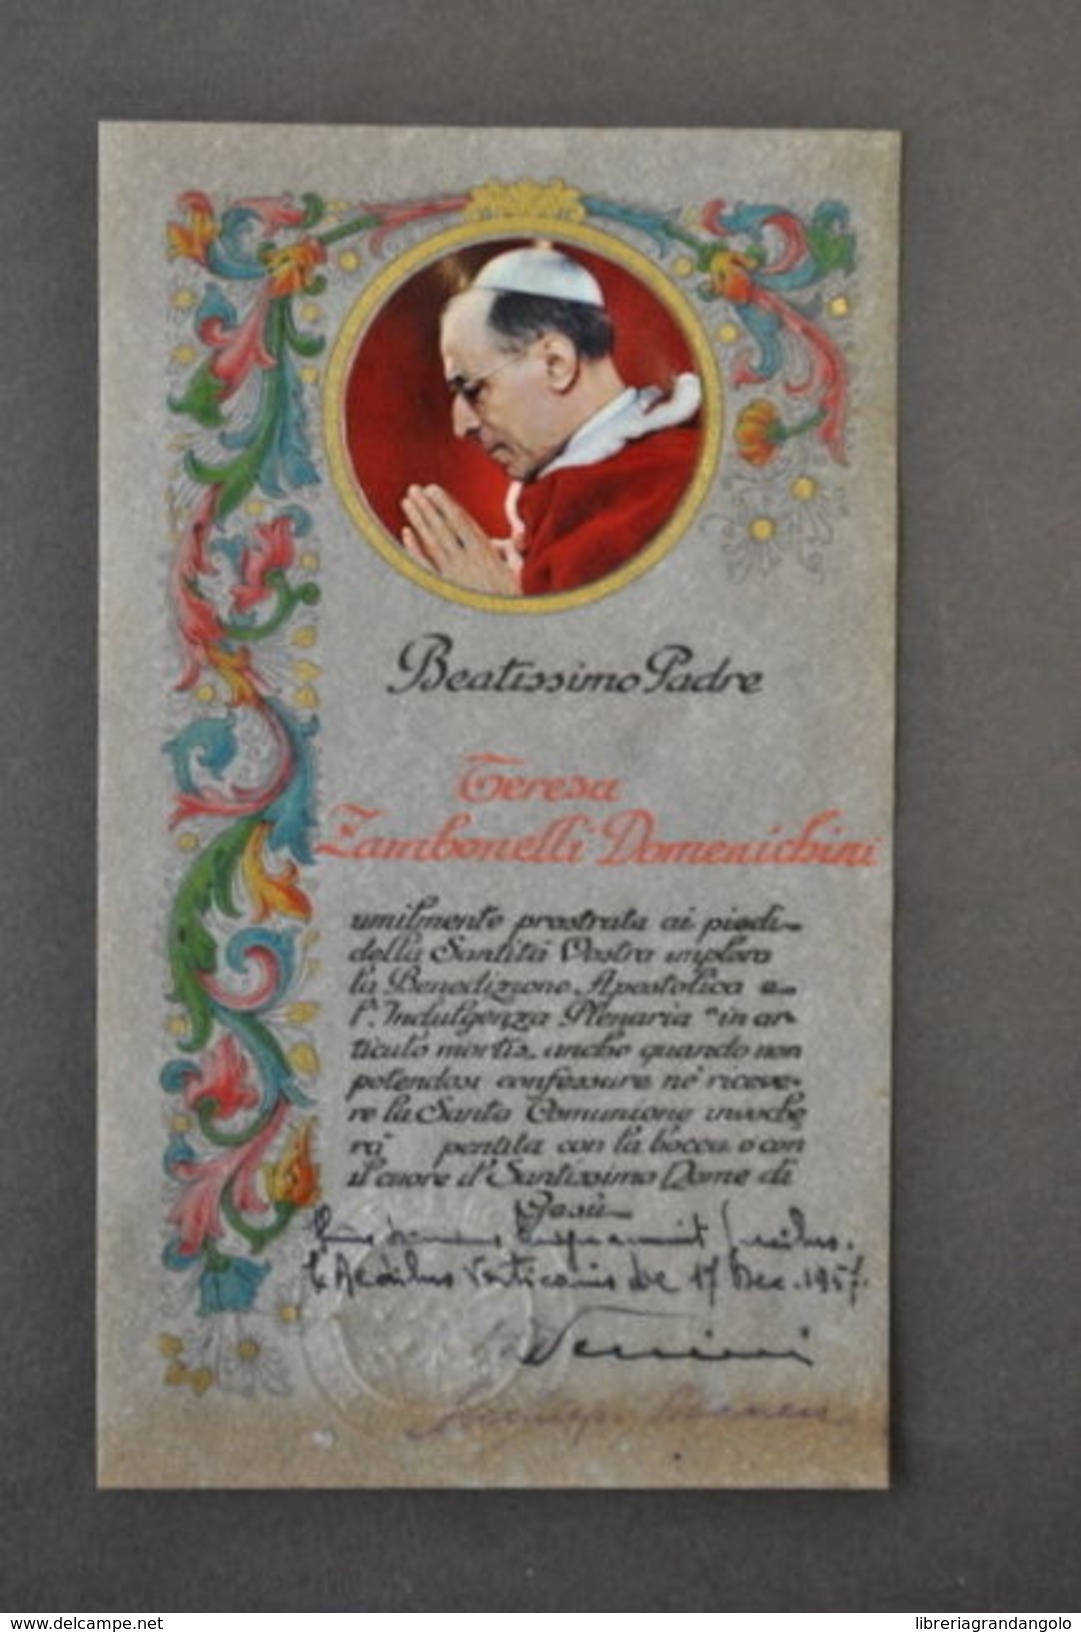 Beatissimo Padre
Teresa
Zambonelli Domenichini
umilmente prostrata ai piedi
della Santità Vostra implora
la Benedizione Apostolica e
l'Indulgenza Plenaria "in ar
ticulo mortis anche quando non
potendosi confessare né riceve-
re la Santa Comunione invoche
rà pentita con la bocca o con
il cuore il Santissimo Nome di
Gesù
Aedibus Vaticanis die 17 Dec. 1957.
www.delcampe.net
libreriagrandangolo